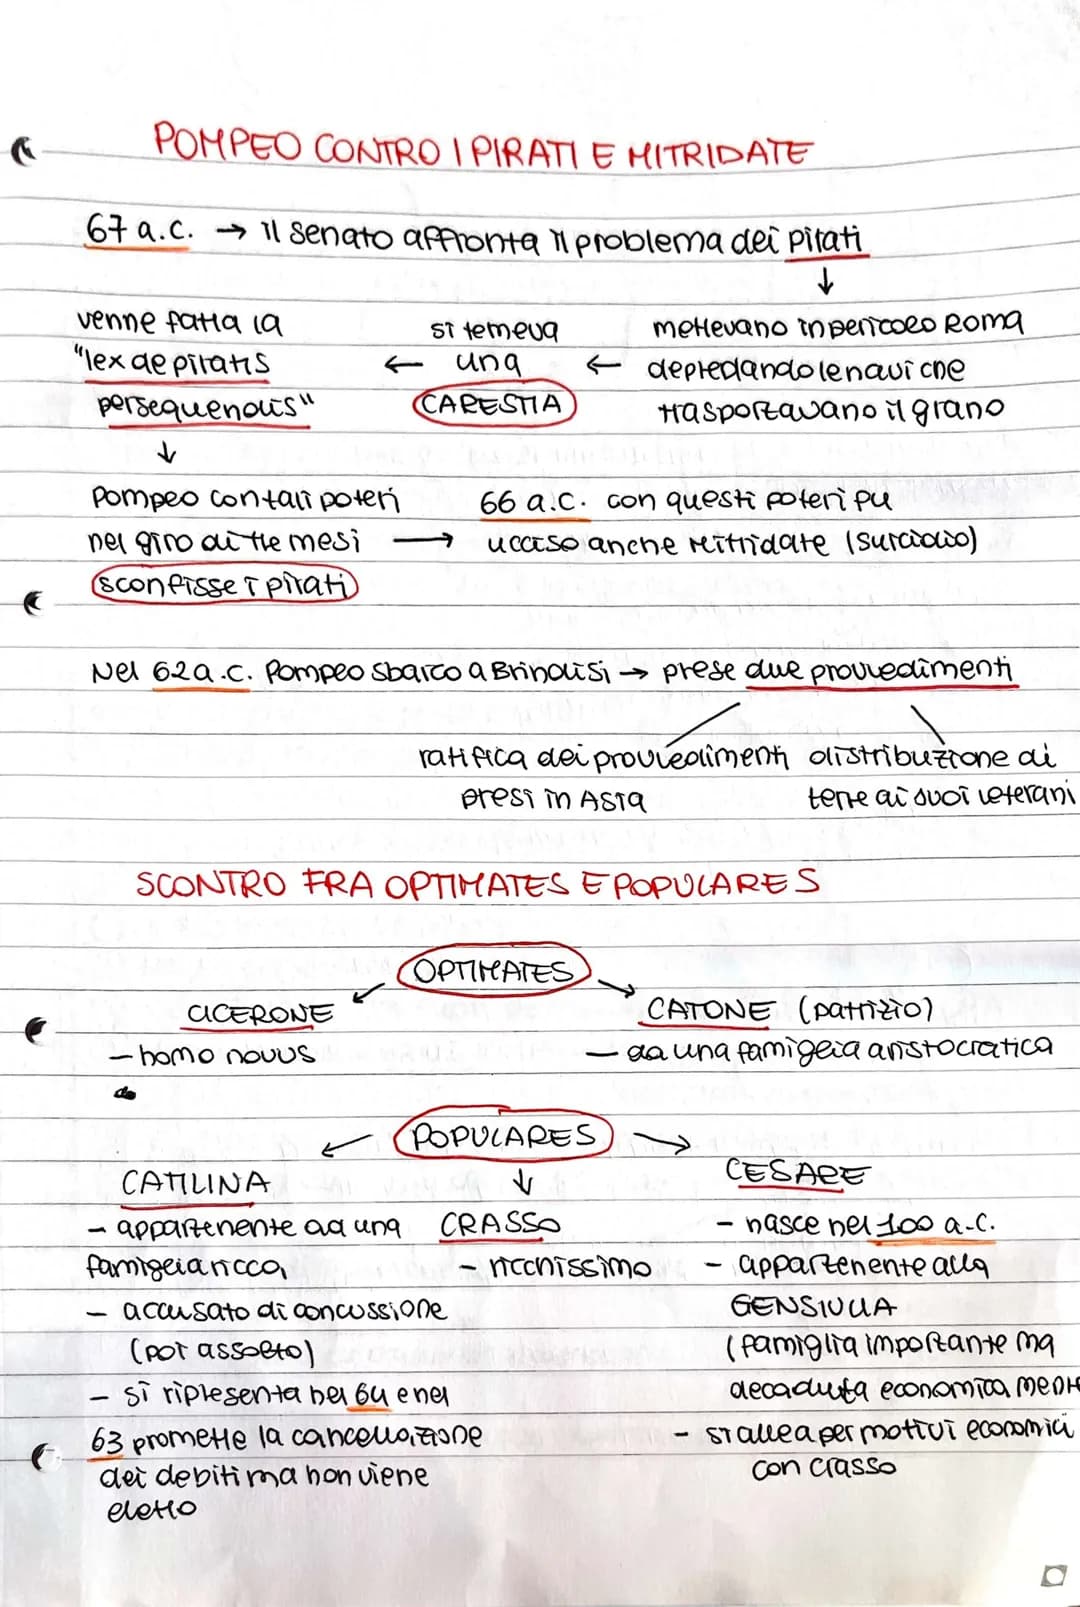 POMPEO CONTRO I PIRATI E MITRIDATE
67 a.c. → il senato affronta il problema dei pirati
↓
mettevano in pericolo Roma
depredando le navi che
trasportavano il grano
← si temeva
una
CARESTIA
← venne fatta la
"lex de piratis
persequendis"
↓
Pompeo con tali poteri
nel giro di tre mesi →
sconfisse i pirati
66 a.c. con questi poteri fu
ucciso anche Mitridate (suicidio)
Nel 62 a.c. Pompeo sbarco a Brindisi → prese due provvedimenti
ratifica dei provvedimenti
presi in Asia
distribuzione di
terre ai suoi veterani
SCONTRO FRA OPTIMATES E POPULARES
OPTIMATES
CICERONE
- homo novus
do
CATONE (patrizio)
- da una famiglia aristocratica
POPULARES
CATILINA
- appartenente ad una
famiglia ricca,
- accusato di concussione
(poi assolto)
- si ripresenta nel 64 e nel
63 promette la cancellazione
dei debiti ma non viene
eletto
CRASSO
- ricchissimo
CESARE
- nasce nel 100 a.c.
- appartenente alla
GENS IULIA
(famiglia importante ma
decaduta economica mente
- si allea per motivi economici
con crasso